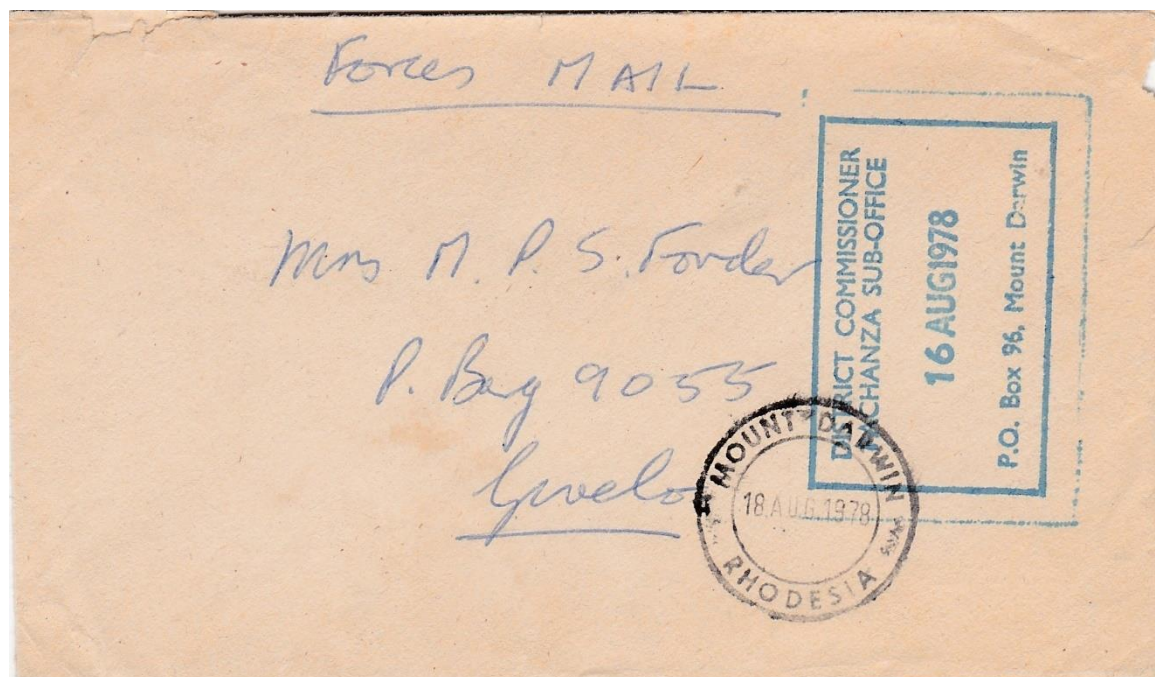 Forces MAIL
Mrs M. P. S. Forder
P. Bag 9055
Gwelo
DISTRICT COMMISSIONER
SUB-OFFICE
16 AUG 1978
P.O. Box 96, Mount Darwin
MOUNT DARWIN
18.AUG.1978
RHODESIA